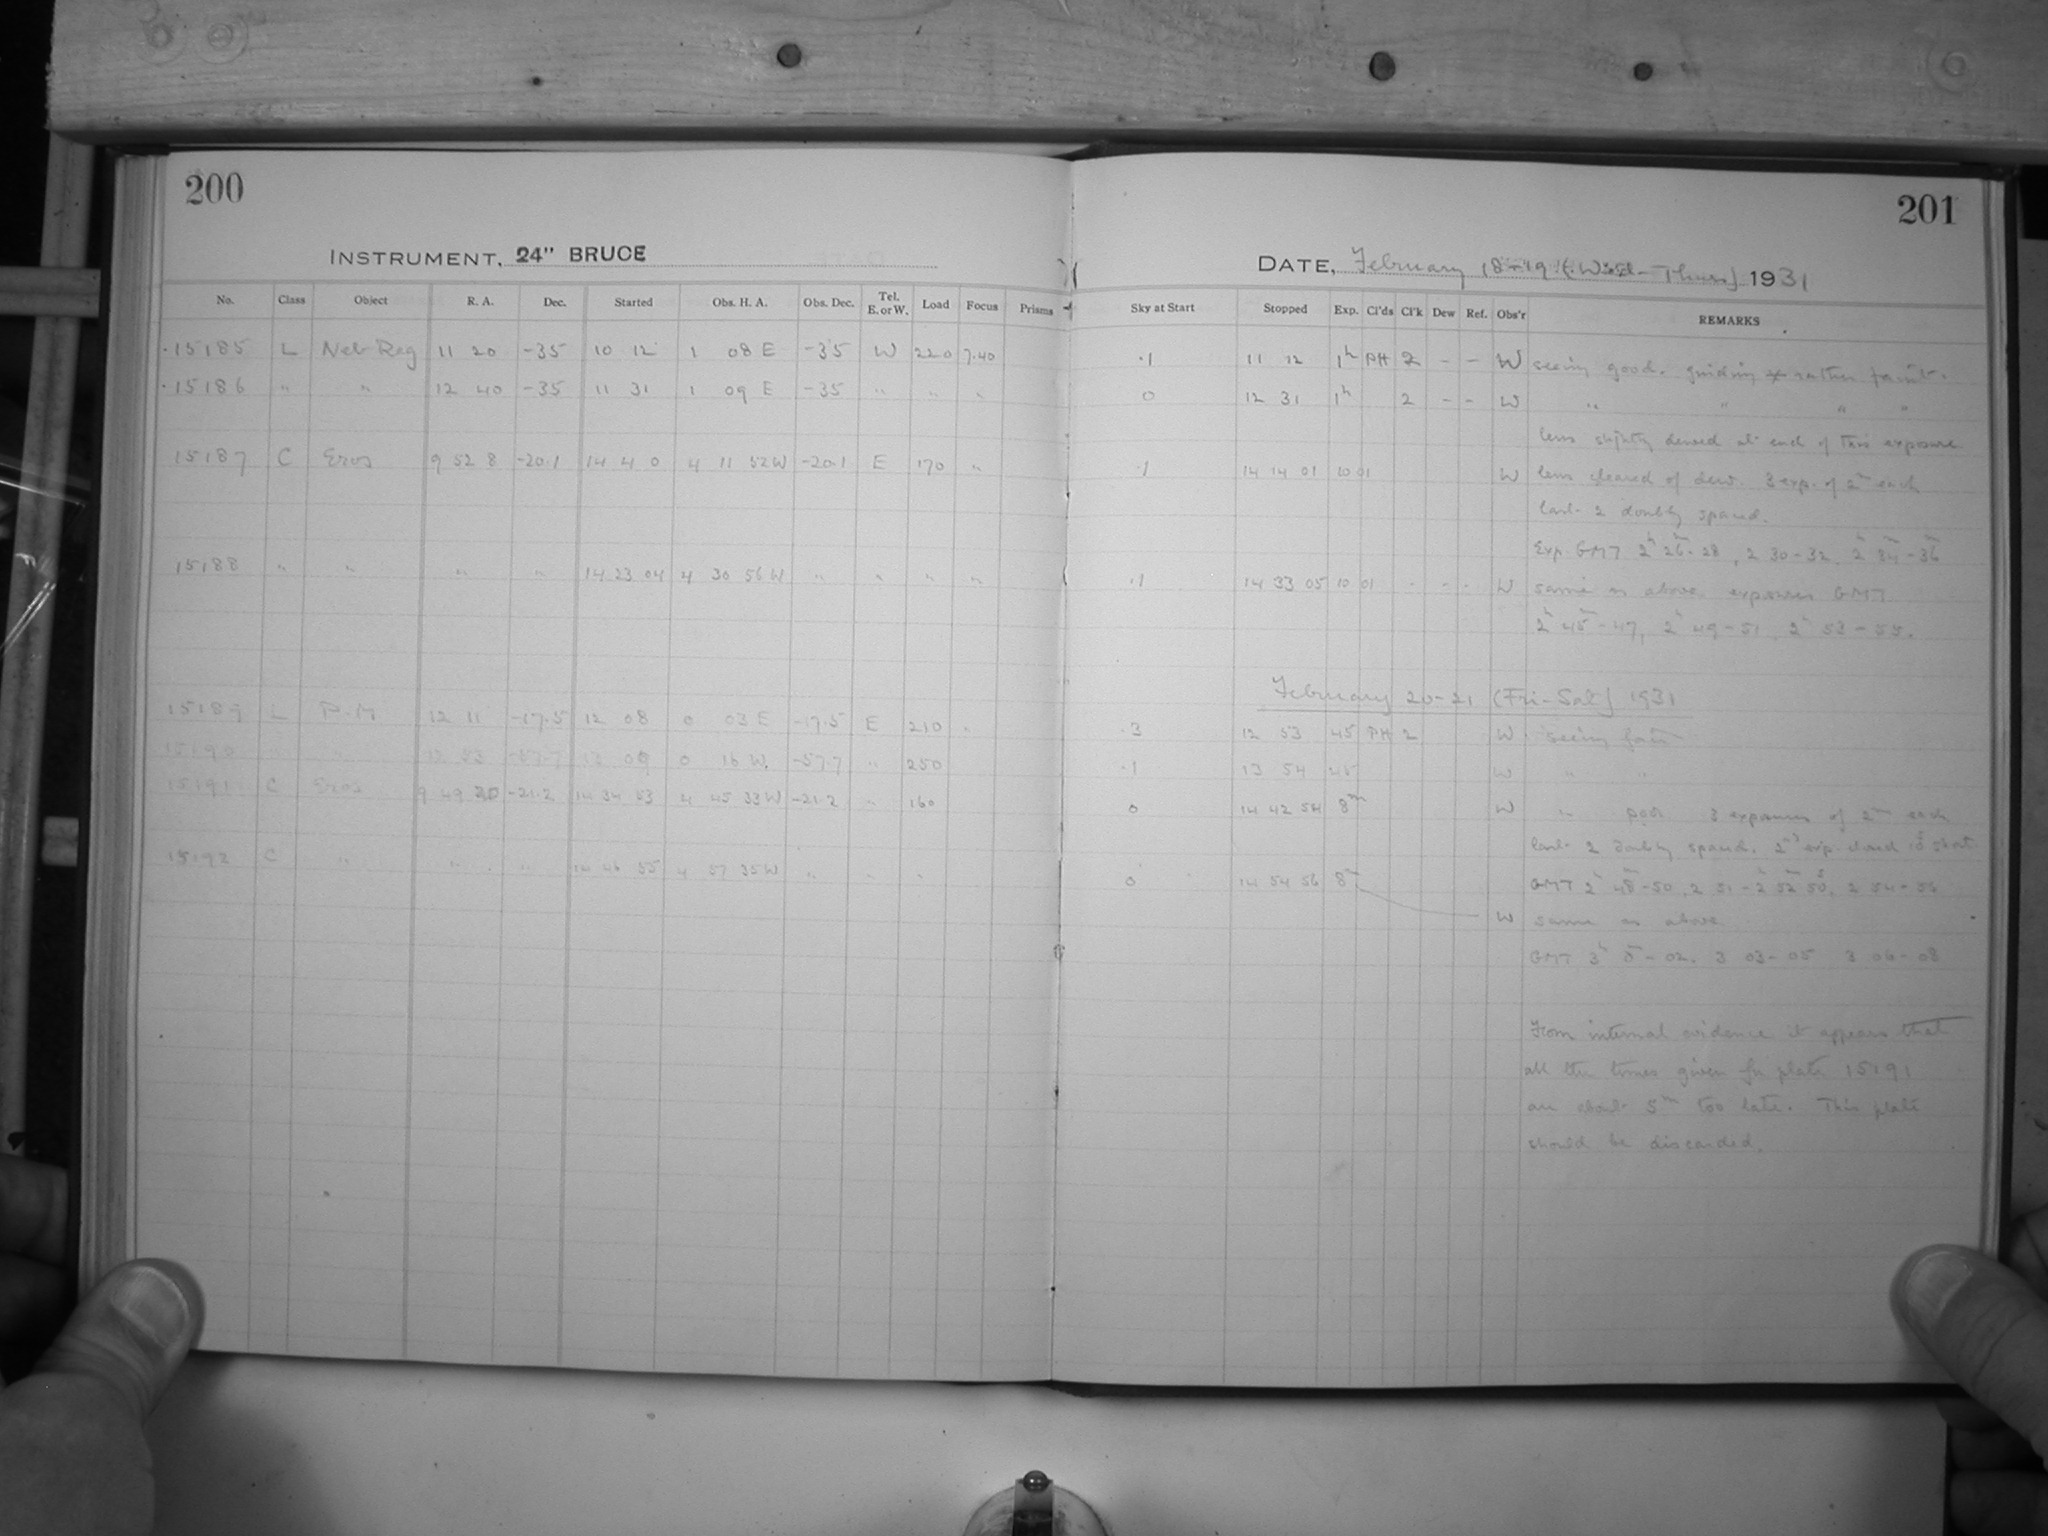 200
INSTRUMENT, 24" BRUCE
No. Class Object R. A. Dec. Started Obs. H. A. Obs. Dec. Tel. E. or W. Load Focus Prisms
15185 L Neb Reg 11 20 -35 10 12 1 08 E -35 W 220 7.40
15186 " " 12 40 -35 11 31 1 09 E -35 " " "
15187 C Eros 9 52 8 -20.1 14 4 0 4 11 52 W -20.1 E 170 "
15188 " " " " 14 23 04 4 30 56 W " " " "
15189 L P.M 12 11 -17.5 12 08 0 03 E -17.5 E 210 "
15190 " " 12 53 -57.7 13 09 0 16 W. -57.7 " 250
15191 C Eros 9 49 -21.2 14 34 53 4 45 33 W -21.2 " 160
15192 C " " " 14 46 55 4 57 35 W " " "
201
DATE, February 18-19 (Wed-Thurs) 1931
Sky at Start Stopped Exp. Cl'ds Cl'k Dew Ref. Obs'r REMARKS
.1 11 12 1h PH 2 - - W seeing good. guiding * rather faint.
0 12 31 1h 2 - - W " " " "
lens slightly dewed at end of this exposure
.1 14 14 01 10 01 W lens cleared of dew. 3 exp. of 2m each
last 2 doubly spaced.
Exp. GMT 2h 26m-28, 2 30-32, 2h 34m-36m
.1 14 33 05 10 01 - - - W same as above exposures GMT
2h 45m-47, 2h 49-51, 2h 53-55.
February 20-21 (Fri-Sat) 1931
.3 12 53 45 PH 2 W seeing fair
.1 13 54 45 W " "
0 14 42 54 8m W " poor 3 exposures of 2m each
last 2 doubly spaced. 2nd exp. closed 10s short
0 14 54 56 8m GMT 2h 48m-50, 2 51-2h 52m 50s, 2 54-56
W same as above
GMT 3h 0m-02. 3 03-05 3 06-08
From internal evidence it appears that
all the times given for plate 15191
are about 5m too late. This plate
should be discarded.